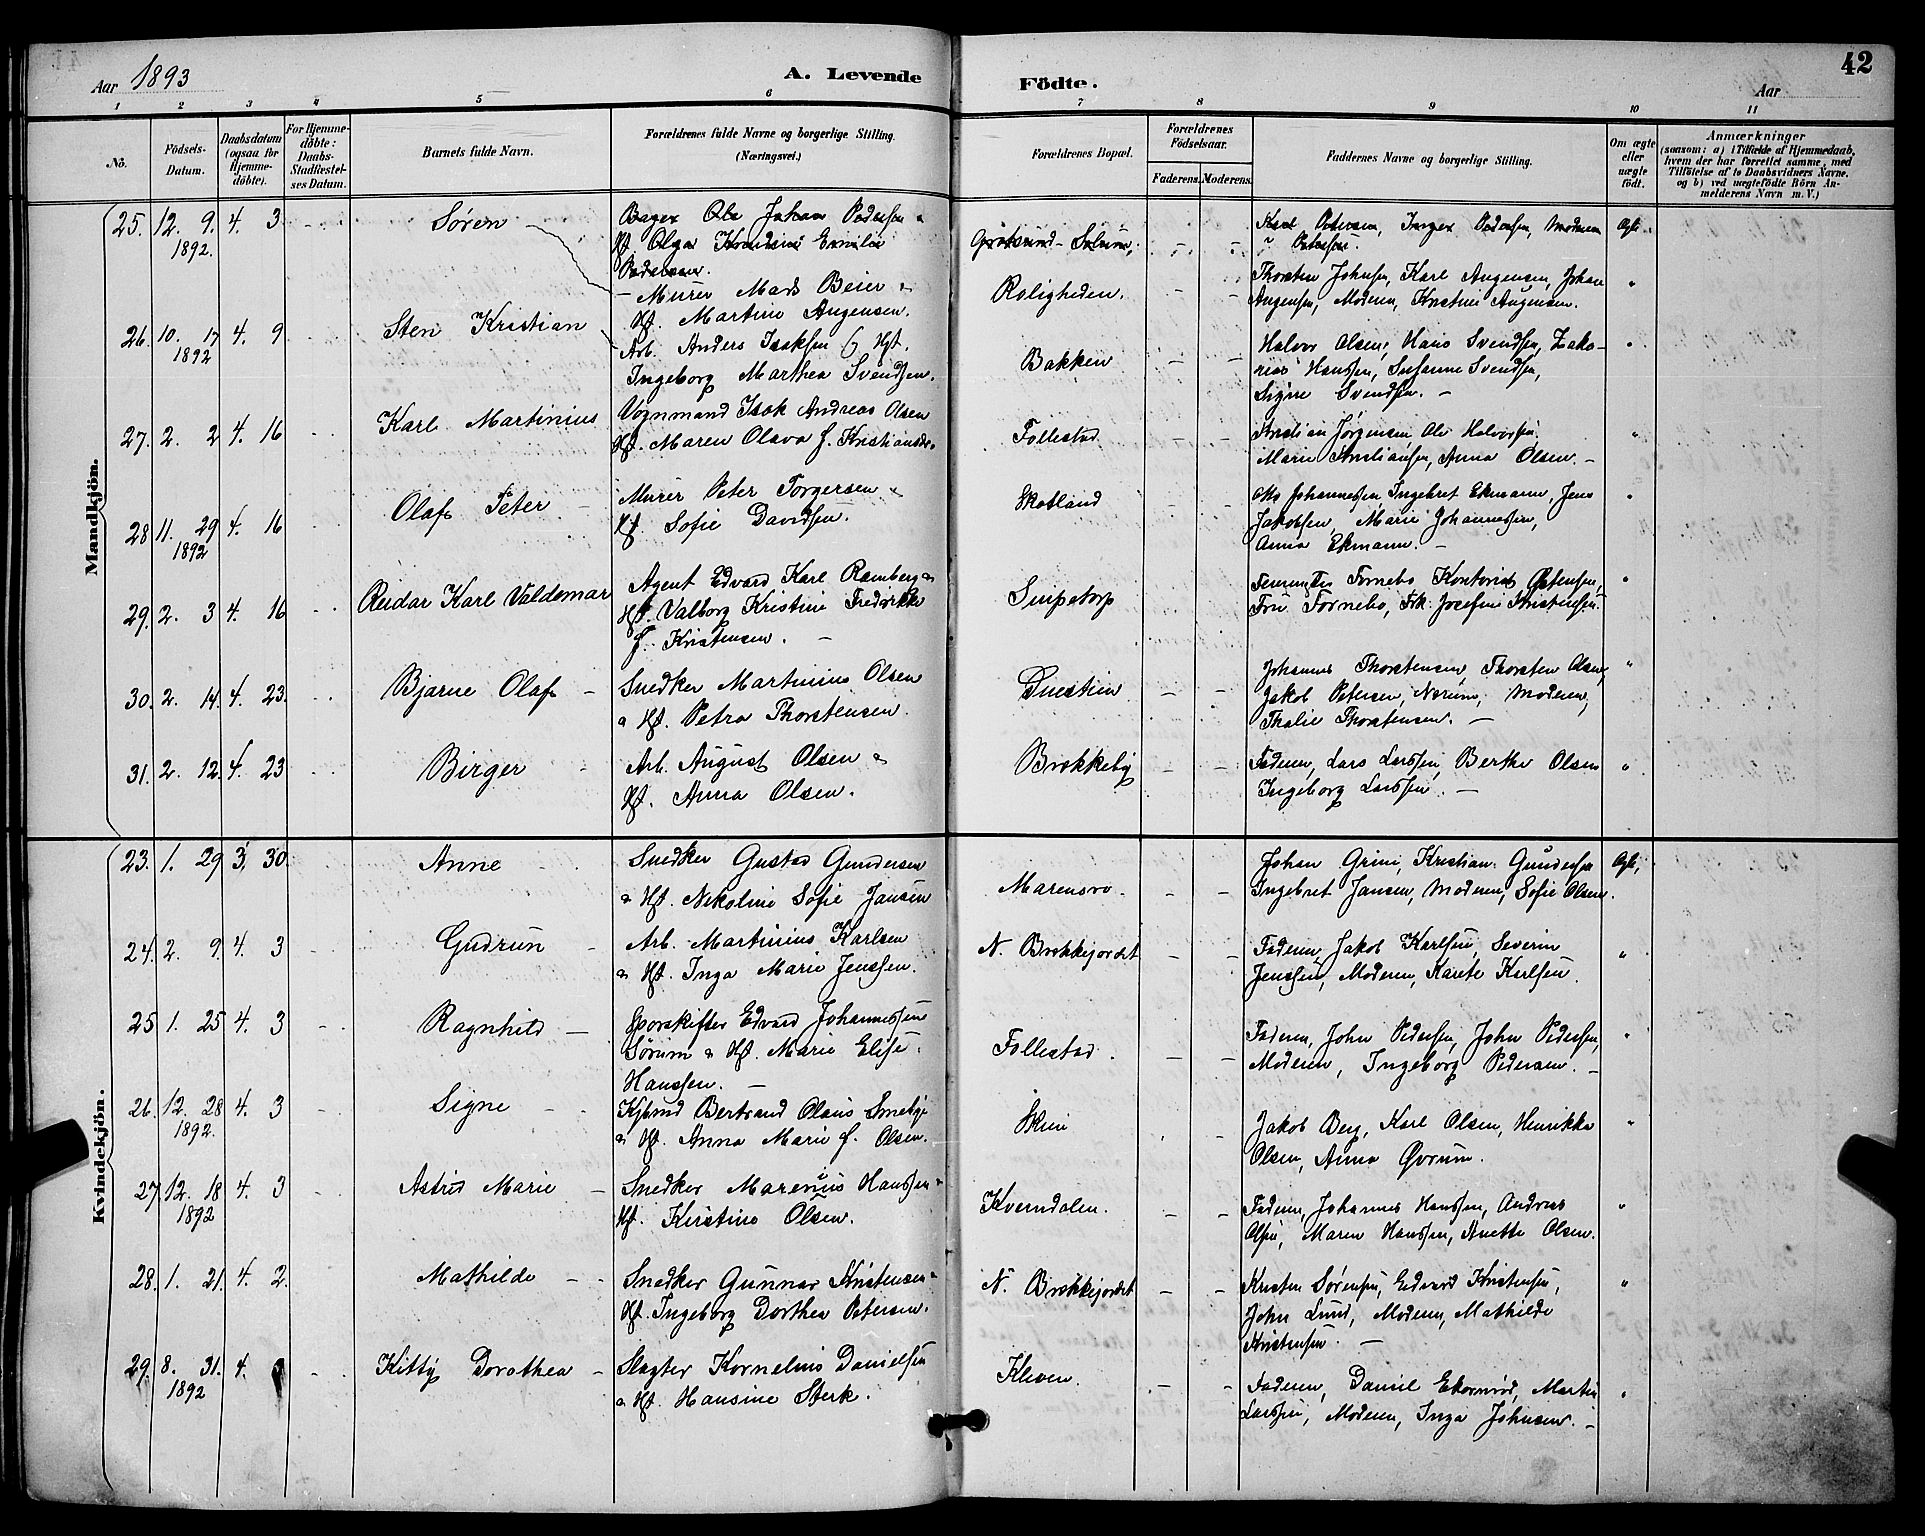 Aar 1893
A. Levende
Födte.
Aar
42
1 2 3 4 5 6 7 8 9 10 11
No.
Födsels-
Datum.
Daabsdatum
(ogsaa for
Hjemme-
döbte).
For Hjemme-
döbte:
Daabs-
Stadfæstel-
ses Datum.
Barnets fulde Navn.
Forældrenes fulde Navne og borgerlige Stilling.
(Næringsvei.)
Forældrenes Bopæl.
Forældrenes
Födselsaar.
Faderens. Moderens.
Faddernes Navne og borgerlige Stilling.
Om ægte
eller
uægte
födt.
Anmærkninger
(saasom: a) i Tilfælde af Hjemmedaab,
hvem der har forrettet samme, med
Tilföielse af to Daabsvidners Navne,
og b) ved uægtefödte Börn An-
melderens Navn m. V.)
Mandkjön.
25. 12. 9. 4. 3 Søren
1892.
Ole Johan Pedersen
Hf. Olga Emilie
Pedersen.
Solum
Petersen, Inger Pedersen, Moderen
Petersen.
Ægte
Murer Mads Beier
Hf. Martine Augensen.
Roligheden.
Thorsten Johnsen, Karl Augensen, Johan
Augensen, Moderen, Kristine Augensen.
26. 10. 17 4. 9 Sten Kristian
1892
Arb. Anders Isaksen og Hf.
Ingeborg Marthea Svendsen.
Bakken
Halvor Olsen, Hans Svendsen, Zaka-
rias Hanssen, Susanne Svendsen,
Signe Svendsen.
27. 2. 2 4. 16 Karl Martinius
Vognmand Isak Andreas Olsen
Hf. Maren Olava f. Kristiansdr.
Follestad
Kristian Jørgensen, Ole Halvorsen,
Marie Kristiansen, Anna Olsen.
28 11. 29 4. 16 Olaf Peter
1892
Murer Peter Torgersen
Hf. Sofie Davidsen.
Skotland
Otto Johannessen Ingebret Ekmann, Jens
Jakobsen, Marie Johannessen,
Anna Ekmann.
29. 2. 3 4. 16 Reidar Karl Valdemar
Agent Edvard Karl Ramberg
Hf. Valborg Kristine Fredrikke
f. Kristensen.
Fornebo, Kontorist Østensen,
Fru Fornebo, Frk. Josefine Kristensen.
30. 2. 14. 4. 23. Bjarne Olaf
Snedker Martinius Olsen
Hf. Petra Thorstensen.
Johannes Thorstensen, Thorsten Olsen,
Jakob Petersen, Nærum, Moderen,
Thalie Thorstensen.
31. 2. 12. 4. 23 Birger
Arb. August Olsen
Hf. Anna Olsen.
Brekkeby
Faderen, Lars Larssen, Berthe Olsen
Ingeborg Larssen.
Kvindekjön.
23. 1. 29 3. 30. Anne
Snedker Gustav Gundersen
Hf. Nikoline Sofie Jansen
Marensro.
Johan Grini, Kristian Gundersen
Ingebret Jansen, Moderen, Sofie Olsen.
Ægte
24. 2. 9. 4. 3 Gudrun
Arb. Martinius Karlsen
Hf. Inga Marie Jenssen.
N. Brekkejordet
Faderen, Jakob Karlsen, Severin
Jenssen, Moderen, Karete Karlsen.
25 1. 25 4. 3 Ragnhild
Sporskifter Edvard Johannessen
Sørum Hf. Marie Elise
Hanssen.
Follestad.
Faderen, John Pedersen, John Pedersen,
Moderen, Ingeborg Pedersen.
26. 12. 28 4. 3 Signe
1892.
Kjbmd Bertrand Olaus Smebye
Hf. Anna Marie f. Olsen.
Skien
Jakob Berg, Karl Olsen, Henrikka
Olsen, Anna Øvrum.
27. 12. 18 4. 3 Astrid Marie
1892
Snedker Marenius Hanssen
Hf. Kirstine Olsen.
Kverndalen.
Faderen, Johannes Hanssen, Andreas
Olsen, Maren Hanssen, Anette Olsen.
28. 1. 21. 4. 2. Mathilde
Snedker Gunnar Kristensen
Hf. Ingeborg Dorthea Petersen.
N. Brekkejordet
Kristen Sørensen, Edvard Kristensen,
John Lund, Moderen, Mathilde
Kristensen.
29. 8. 31. 4. Kitty Dorothea
1892
Slagter Kornelius Danielsen
Hf. Hansine Sterk.
Kleven.
Faderen, Daniel Ekornrød, Martin
Larssen, Moderen, Inga Johnsen.